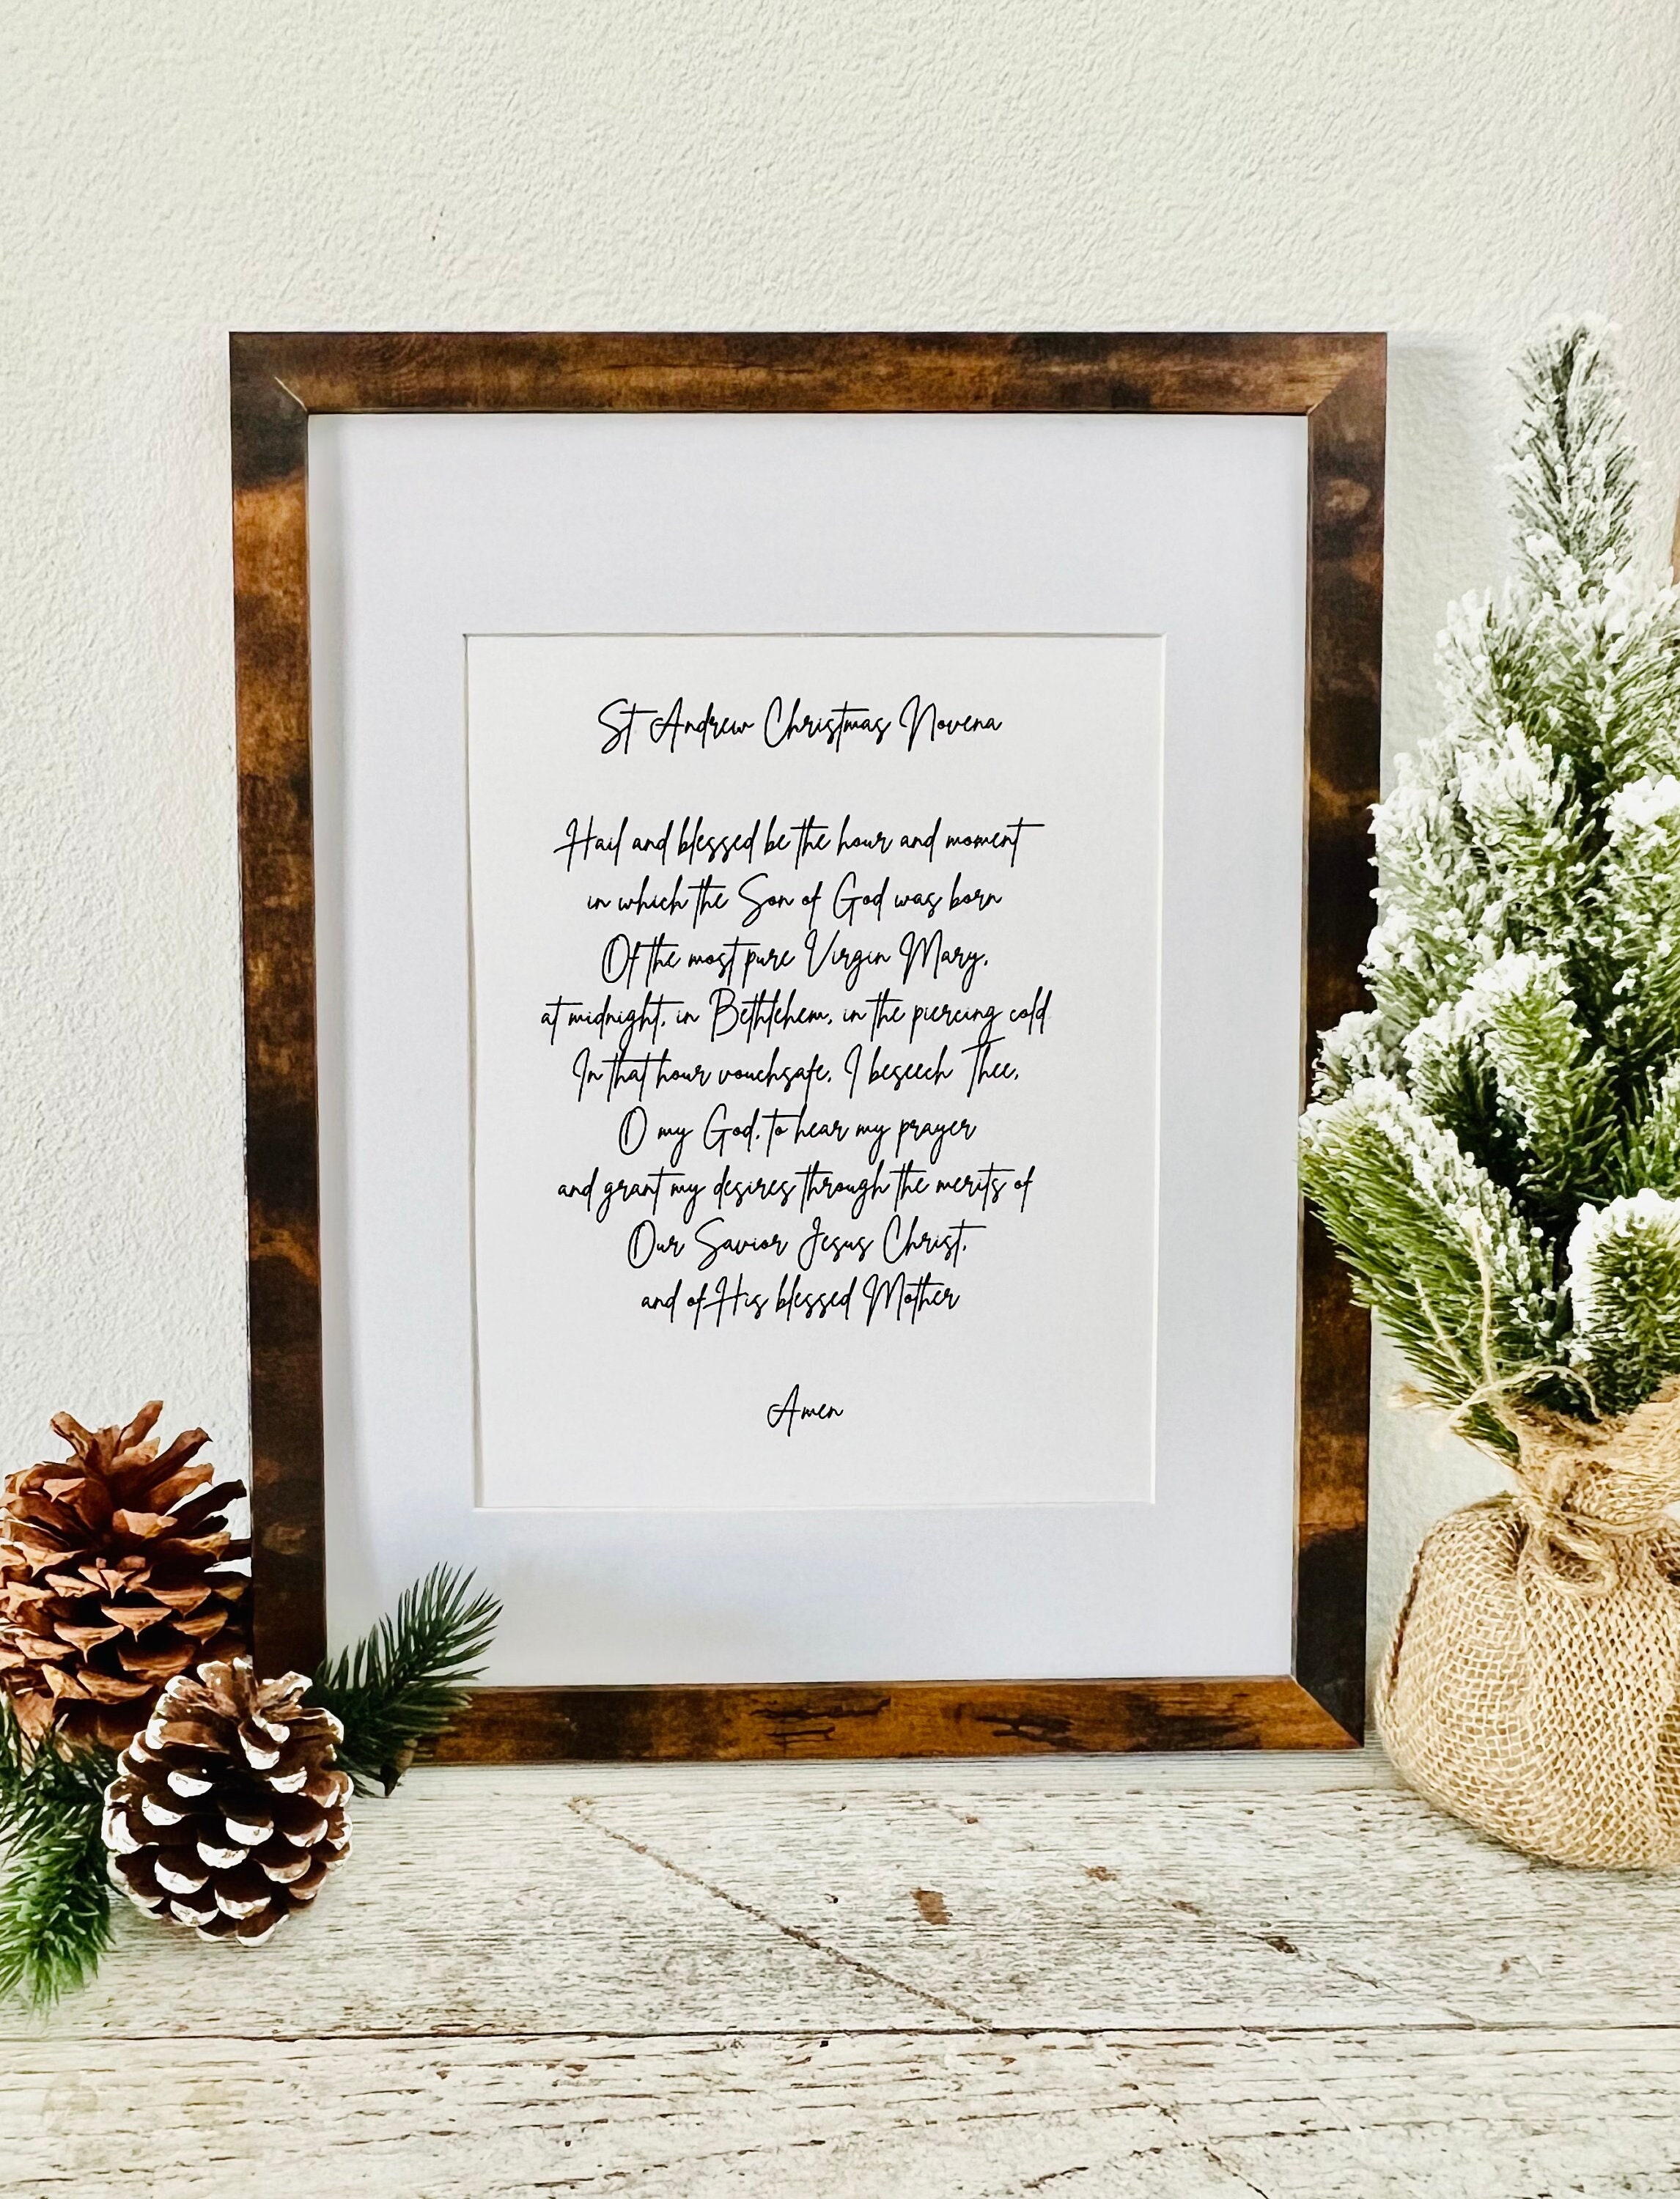 St Andrew Christmas Novena
Hail and blessed be the hour and moment
in which the Son of God was born
Of the most pure Virgin Mary,
at midnight, in Bethlehem, in the piercing cold
In that hour vouchsafe, I beseech Thee,
O my God, to hear my prayer
and grant my desires through the merits of
Our Savior Jesus Christ,
and of His blessed Mother
Amen